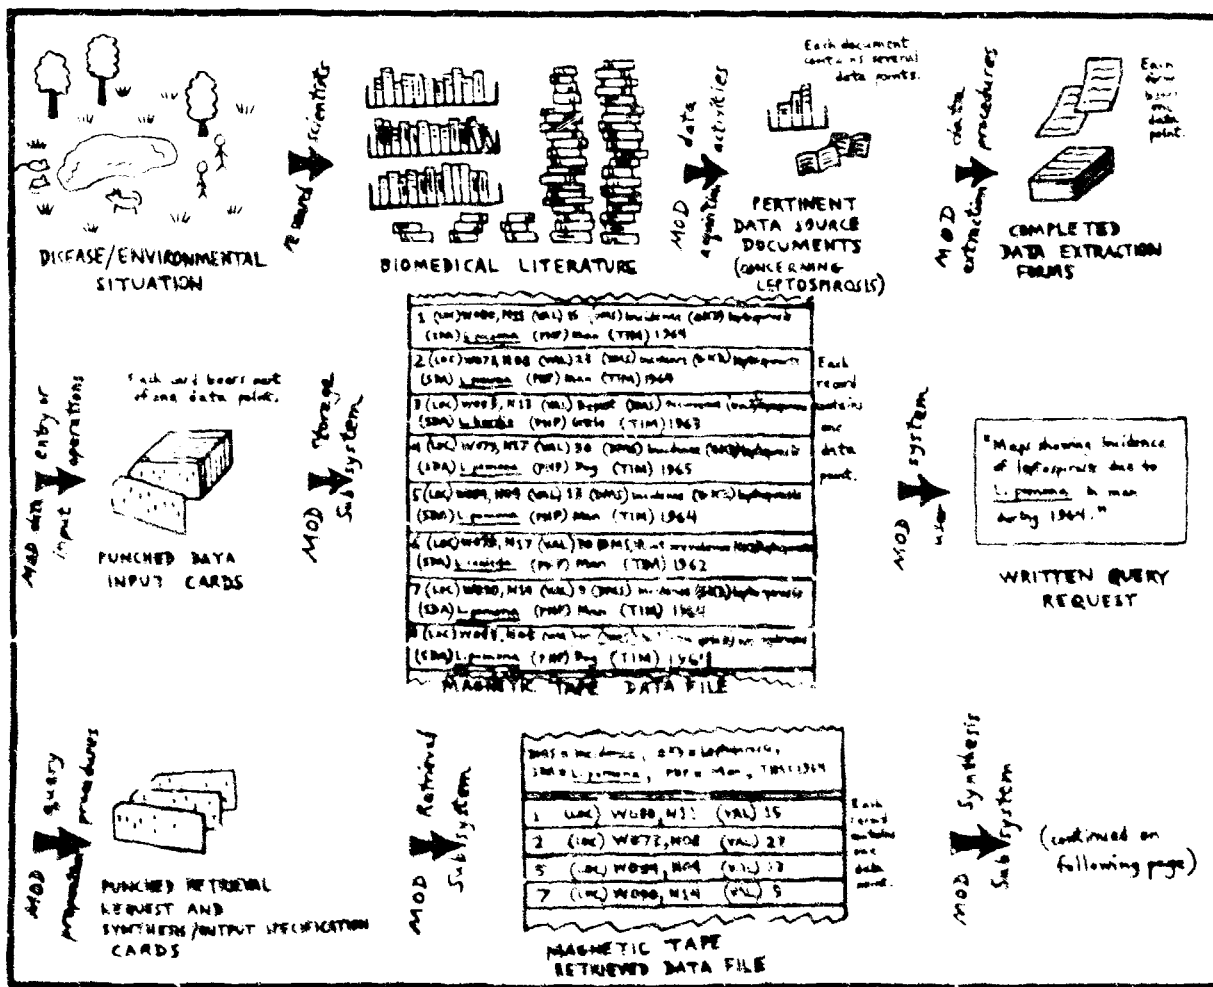 research scientists
DISEASE/ENVIRONMENTAL
SITUATION
BIOMEDICAL LITERATURE
MOD data
acquisition activities
Each document
contains several
data points.
PERTINENT
DATA SOURCE
DOCUMENTS
(CONCERNING
LEPTOSPIROSIS)
MOD data
extraction procedures
Each
form
bears
data
point.
COMPLETED
DATA EXTRACTION
FORMS
MOD data entry or
input operations
Each card bears part
of one data point.
PUNCHED DATA
INPUT CARDS
MOD Storage
Subsystem
1 (LOC) W080, N33 (VAL) 15 (DMS) Incidence leptospirosis
(SDA) L. pomona (PHP) Man (TIM) 1964
2 (LOC) W073, N08 (VAL) 23 (DMS) Incidence leptospirosis
(SDA) L. pomona (PHP) Man (TIM) 1964
3 (LOC) N13 (VAL) (DMS)
(SDA) (PHP) (TIM) 1963
4 (LOC) W079, N17 (VAL) 30 (DMS) Incidence leptospirosis
(SDA) L. pomona (PHP) Dog (TIM) 1965
5 (LOC) W089, N09 (VAL) 13 (DMS) Incidence leptospirosis
(SDA) L. pomona (PHP) Man (TIM) 1964
6 (LOC) N17 (VAL)
(SDA) (PHP) Man (TIM) 1962
7 (LOC) W090, N14 (VAL) 9 (DMS) Incidence leptospirosis
(SDA) L. pomona (PHP) Man (TIM) 1964
8 (LOC)
(SDA) L. pomona (PHP) Dog (TIM)
MAGNETIC TAPE DATA FILE
Each
record
contains
one
data
point.
MOD system
user
"Maps showing incidence
of leptospirosis due to
L. pomona in man
during 1964."
WRITTEN QUERY
REQUEST
MOD query
preparation procedures
PUNCHED RETRIEVAL
REQUEST AND
SYNTHESIS/OUTPUT SPECIFICATION
CARDS
MOD Retrieval
Subsystem
DMS = Incidence, = Leptospirosis,
SDA = L. pomona, PHP = Man, TIM = 1964
1 (LOC) W080, N33 (VAL) 15
2 (LOC) W073, N08 (VAL) 23
5 (LOC) W089, N09 (VAL) 13
7 (LOC) W090, N14 (VAL) 9
Each
record
contains
one
data
point.
MAGNETIC TAPE
RETRIEVED DATA FILE
MOD Synthesis
Subsystem
(continued on
following page)